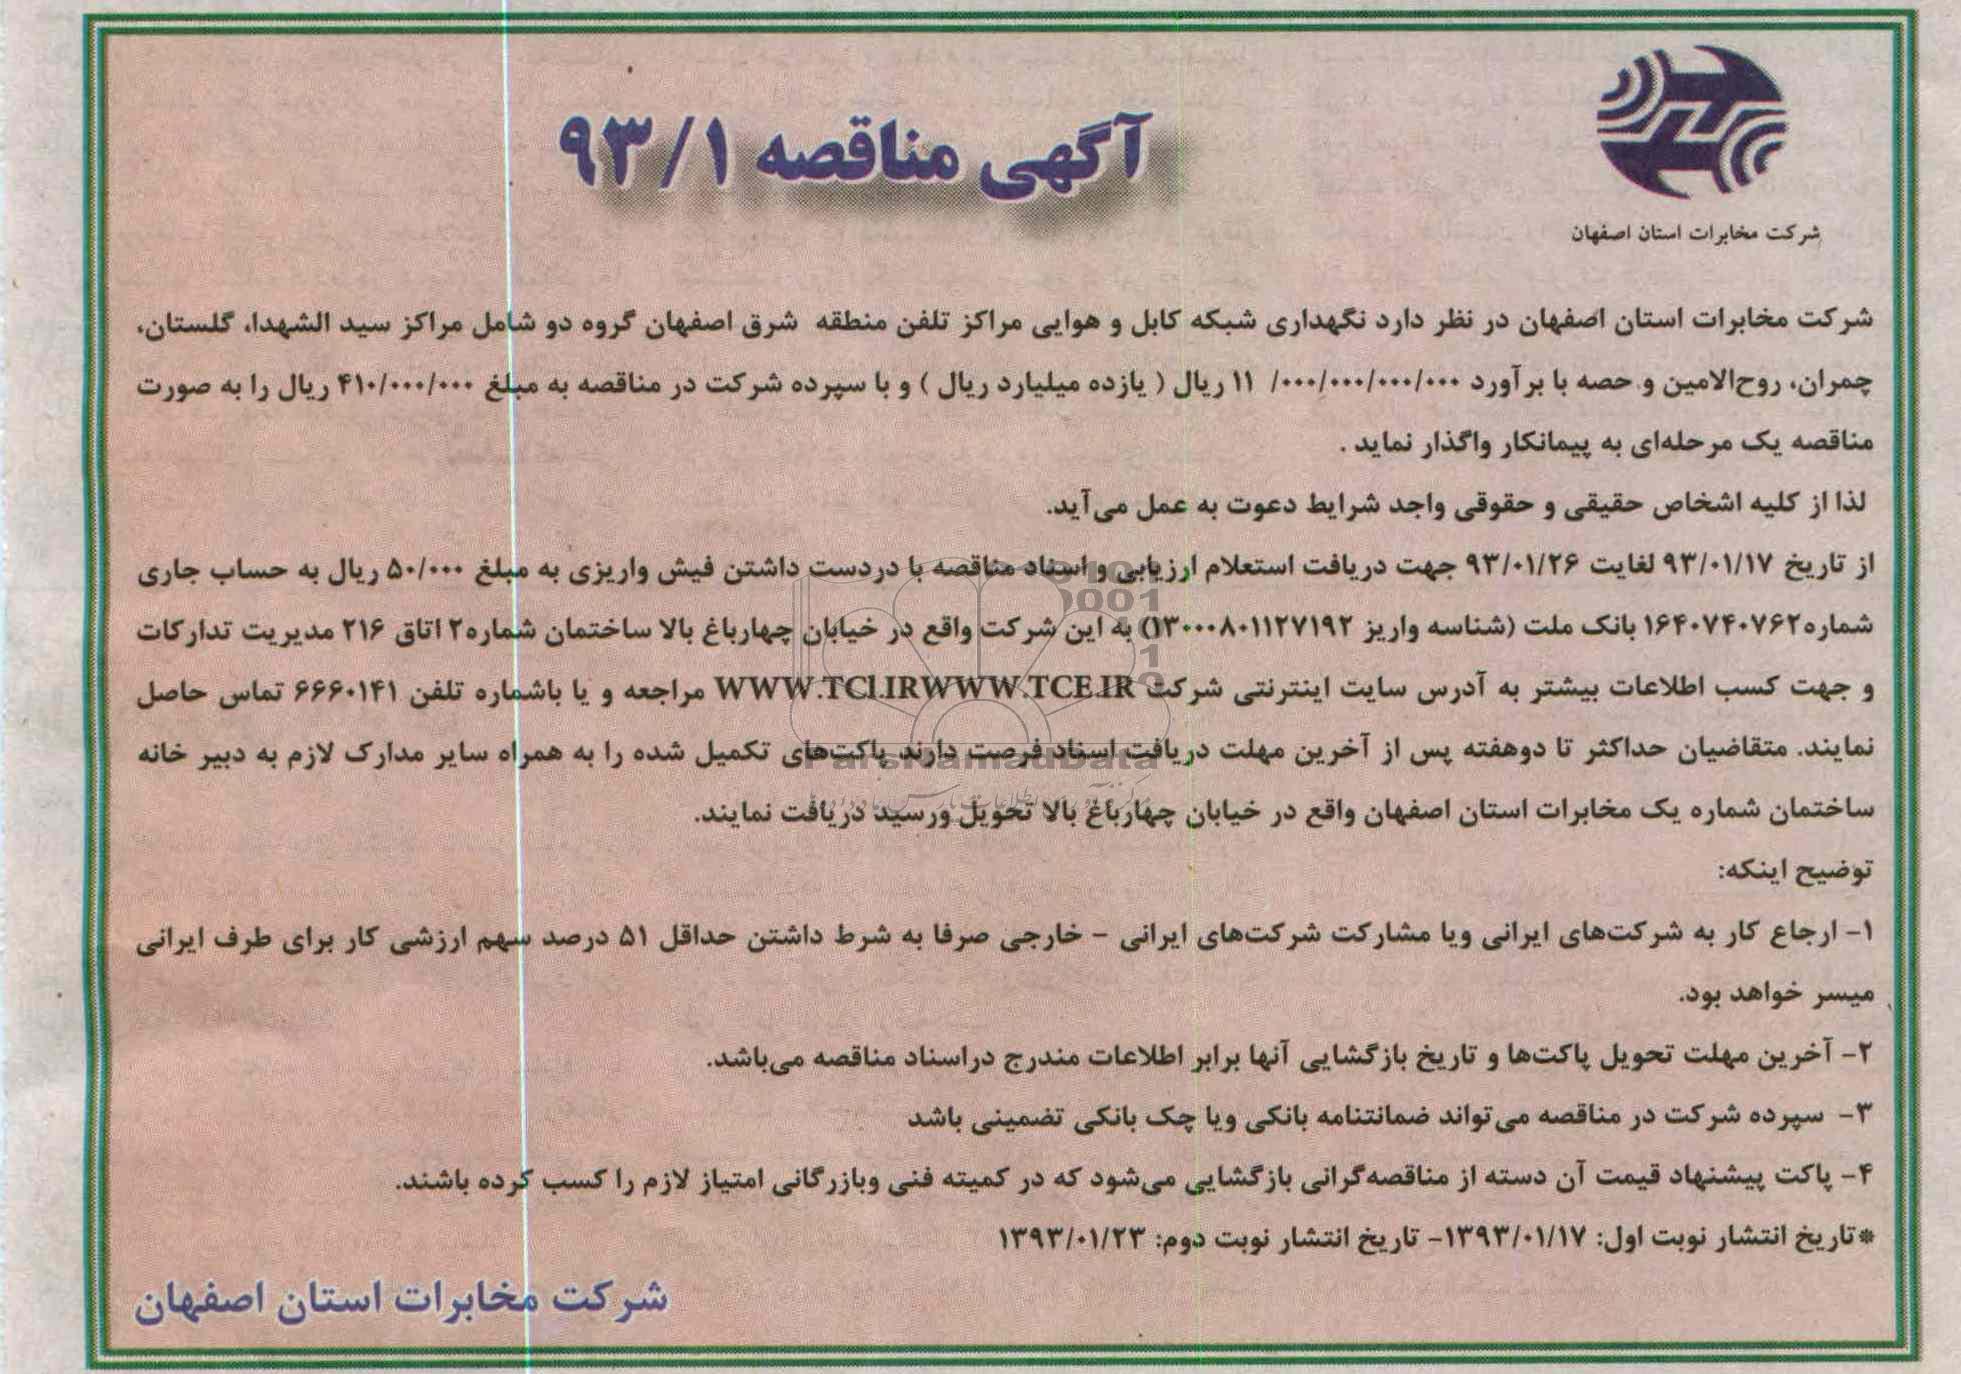 شرکت مخابرات استان اصفهان
آگهی مناقصه ۹۳/۱
شرکت مخابرات استان اصفهان در نظر دارد نگهداری شبکه کابل و هوایی مراکز تلفن منطقه شرق اصفهان گروه دو شامل مراکز سید الشهدا، گلستان،
چمران، روح‌الامین و حصه با برآورد ۰۰۰/۰۰۰/۰۰۰/۰۰۰/ ۱۱ ریال ( یازده میلیارد ریال ) و با سپرده شرکت در مناقصه به مبلغ ۴۱۰/۰۰۰/۰۰۰ ریال را به صورت
مناقصه یک مرحله‌ای به پیمانکار واگذار نماید .
لذا از کلیه اشخاص حقیقی و حقوقی واجد شرایط دعوت به عمل می‌آید.
از تاریخ ۹۳/۰۱/۱۷ لغایت ۹۳/۰۱/۲۶ جهت دریافت استعلام ارزیابی و اسناد مناقصه با دردست داشتن فیش واریزی به مبلغ ۵۰/۰۰۰ ریال به حساب جاری
شماره۱۶۴۰۷۴۰۷۶۲ بانک ملت (شناسه واریز ۱۳۰۰۰۸۰۱۱۲۷۱۹۲) به این شرکت واقع در خیابان چهارباغ بالا ساختمان شماره۲ اتاق ۲۱۶ مدیریت تدارکات
و جهت کسب اطلاعات بیشتر به آدرس سایت اینترنتی شرکت WWW.TCI.IRWWW.TCE.IR مراجعه و یا باشماره تلفن ۶۶۶۰۱۴۱ تماس حاصل
نمایند. متقاضیان حداکثر تا دوهفته پس از آخرین مهلت دریافت اسناد فرصت دارند پاکت‌های تکمیل شده را به همراه سایر مدارک لازم به دبیر خانه
ساختمان شماره یک مخابرات استان اصفهان واقع در خیابان چهارباغ بالا تحویل ورسید دریافت نمایند.
توضیح اینکه:
۱- ارجاع کار به شرکت‌های ایرانی ویا مشارکت شرکت‌های ایرانی - خارجی صرفا به شرط داشتن حداقل ۵۱ درصد سهم ارزشی کار برای طرف ایرانی
میسر خواهد بود.
۲- آخرین مهلت تحویل پاکت‌ها و تاریخ بازگشایی آنها برابر اطلاعات مندرج دراسناد مناقصه می‌باشد.
۳- سپرده شرکت در مناقصه می‌تواند ضمانتنامه بانکی ویا چک بانکی تضمینی باشد
۴- پاکت پیشنهاد قیمت آن دسته از مناقصه‌گرانی بازگشایی می‌شود که در کمیته فنی وبازرگانی امتیاز لازم را کسب کرده باشند.
*تاریخ انتشار نوبت اول: ۱۳۹۳/۰۱/۱۷- تاریخ انتشار نوبت دوم: ۱۳۹۳/۰۱/۲۳
شرکت مخابرات استان اصفهان
ParsNamadData